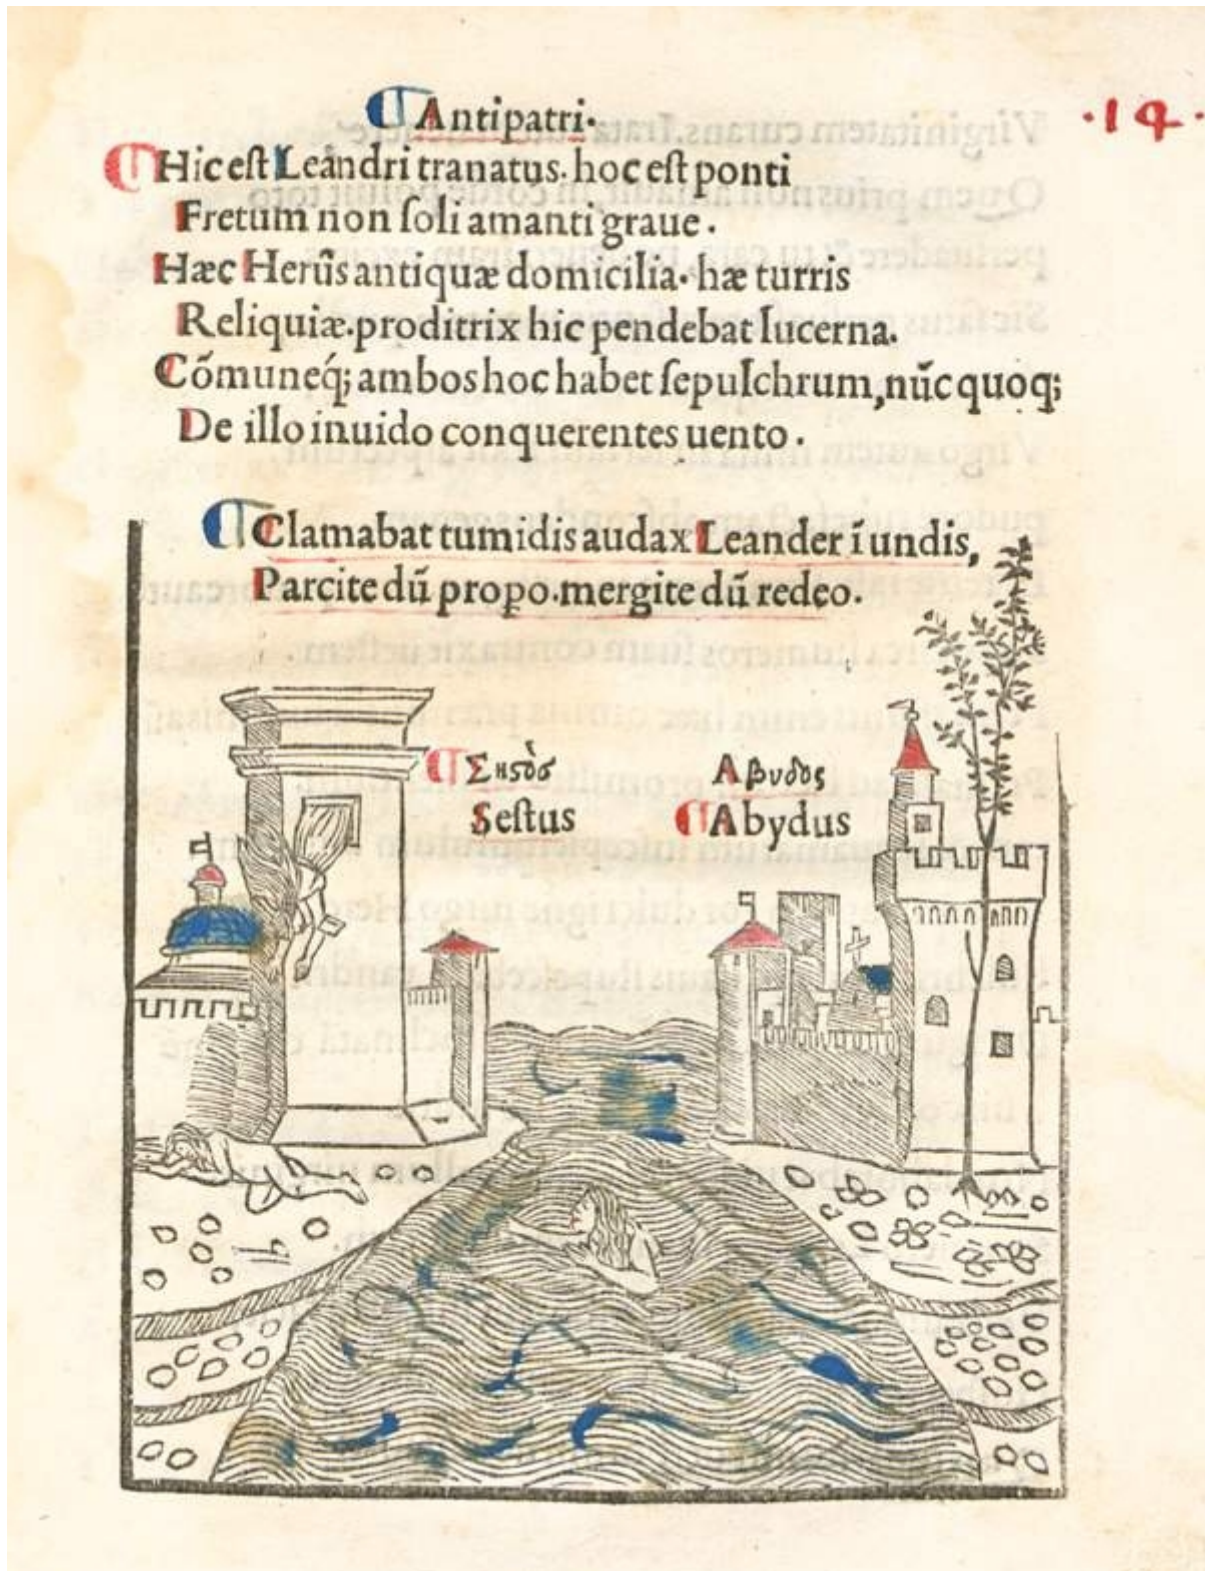 Antipatri·
·14·
Hic eſt Leandri tranatus· hoc eſt ponti
Fretum non ſoli amanti graue·
Hæc Herūs antiquæ domicilia· hæ turris
Reliquiæ·proditrix hic pendebat lucerna.
Cōmuneq́; ambos hoc habet ſepulchrum, nūc quoq;
De illo inuido conquerentes uento·
Clamabat tumidis audax Leander ī undis,
Parcite dū propo·mergite dū redeo.
Σηστὸσ Αβυδος
Seſtus Abydus